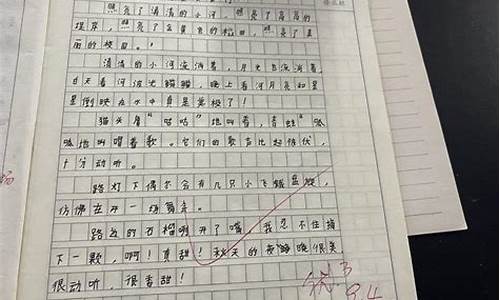 照亮了清清的小河,照亮了高高的
堤岸,照亮了金黄色的稻田,照亮了美
丽的校园。
清清的小河流淌着,月光也流淌着,
白天看河波光粼粼,晚上看河月亮和星
星倒映在水中真是美极了!
猫头鹰"咕咕"地叫着,青蛙"呱
呱地叫唱着歌。它们的歌声此起彼伏,
十分动听。
路灯下偶尔会有几只小飞蛾盘旋,
仿佛在开一场舞会。
路边的石榴咧开了嘴,我忍不住摘
下一颗,啊!真甜!秋天的夜晚很美,
很动听,很香甜!
优